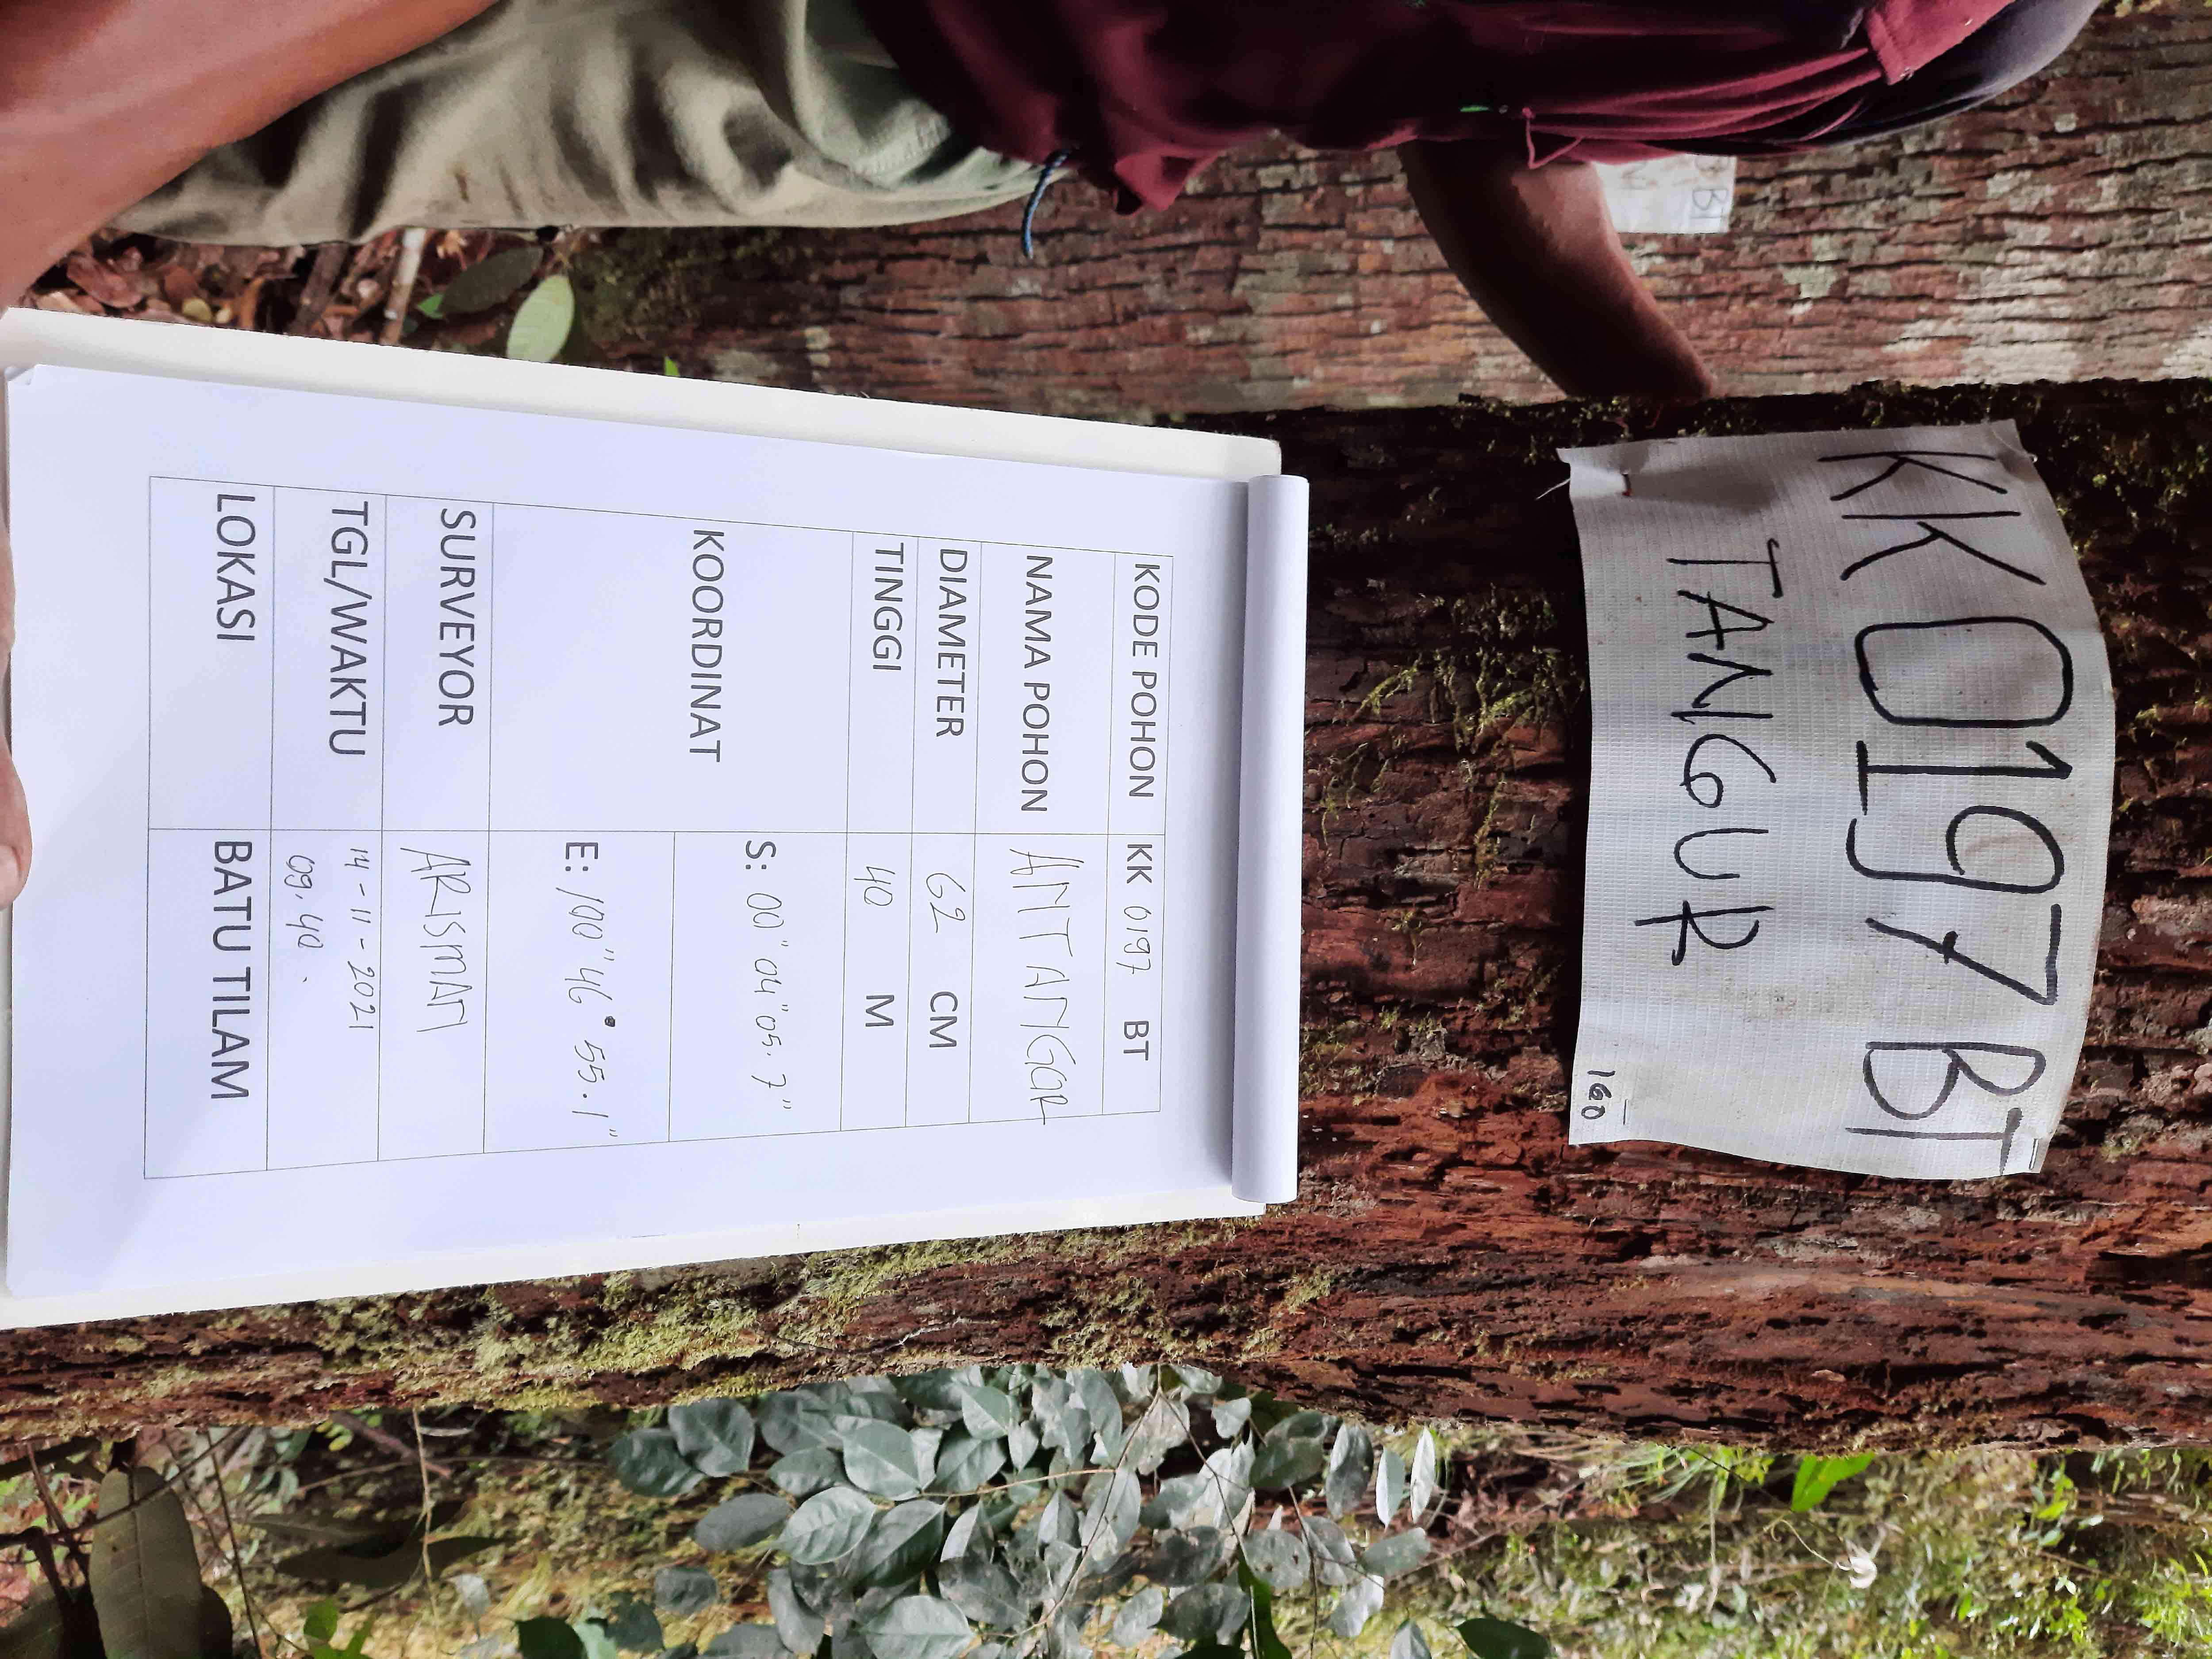 KK0197BT
TANGUR
160
KODE POHON KK 0197 BT
NAMA POHON ANTANGUR
DIAMETER 62 CM
TINGGI 40 M
KOORDINAT S: 00" 04" 05.7"
E: 100" 46° 55.1"
SURVEYOR ARISMAN
TGL/WAKTU 14-11-2021
09.40.
LOKASI BATU TILAM